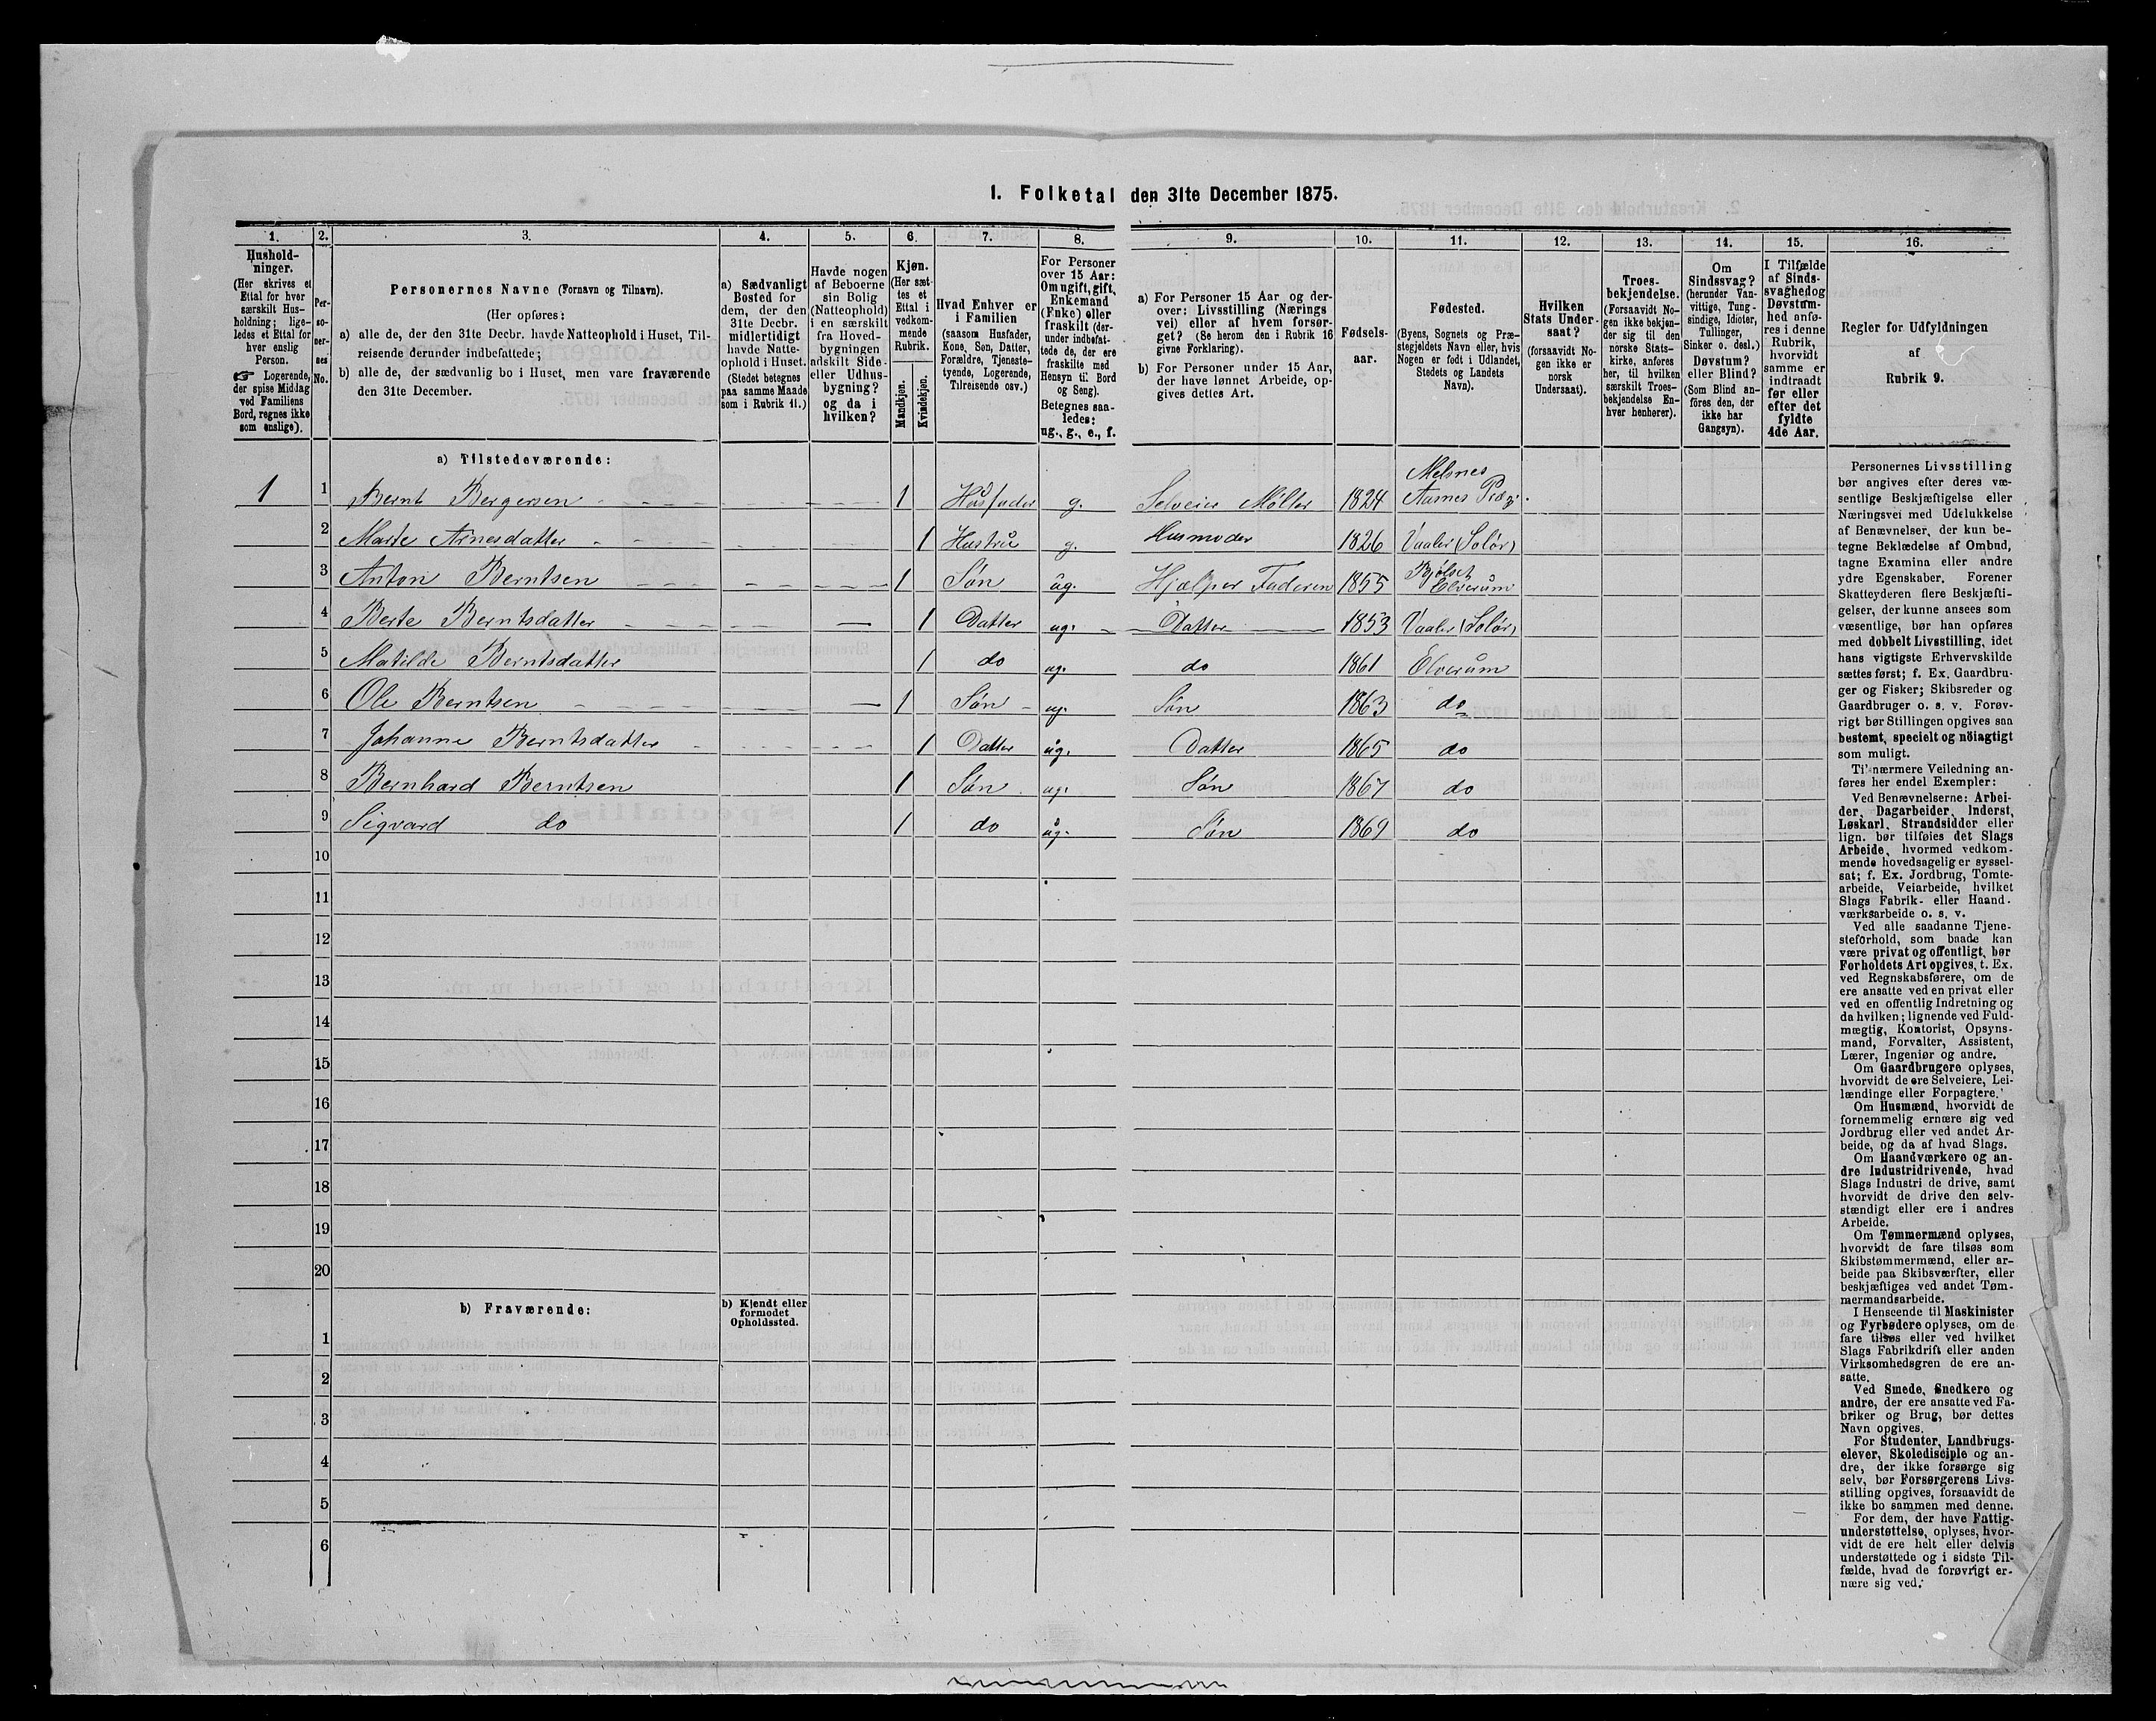 1. Folketal den 31te December 1875.
1. 2. 3. 4. 5. 6. 7. 8. 9. 10. 11. 12. 13. 14. 15. 16.
Hushold-
ninger.
(Her skrives et
Ettal for hver
særskilt Hus-
holdning; lige-
ledes et Ettal for
hver enslig
Person.
☞ Logerende,
der spise Middag
ved Familiens
Bord, regnes ikke
som enslige).
Per-
so-
ner-
nes
No.
Personernes Navne (Fornavn og Tilnavn).
(Her opføres:
a) alle de, der den 31te Decbr. havde Natteophold i Huset, Til-
reisende derunder indbefattede;
b) alle de, der sædvanlig bo i Huset, men vare fraværende
den 31te December.
a) Sædvanligt
Bosted for
dem, der den
31te Decbr.
midlertidigt
havde Natte-
ophold i Huset.
(Stedet betegnes
paa samme Maade
som i Rubrik 11.)
Havde nogen
af Beboerne
sin Bolig
(Natteophold)
i en særskilt
fra Hoved-
bygningen
adskilt Side-
eller Udhus-
bygning?
og da i
hvilken?
Kjøn.
(Her sæt-
tes et
Ettal i
vedkom-
mende
Rubrik.
Mandkjøn.
Kvindekjøn.
Hvad Enhver er
i Familien
(saasom Husfader,
Kone, Søn, Datter,
Forældre, Tjeneste-
tyende, Logerende,
Tilreisende osv.)
For Personer
over 15 Aar:
Om ugift, gift,
Enkemand
(Enke) eller
fraskilt (der-
under indbefat-
tede de, der ere
fraskilte med
Hensyn til Bord
og Seng).
Betegnes saa-
ledes:
ug., g., e., f.
a) For Personer 15 Aar og der-
over: Livsstilling (Nærings
vei) eller af hvem forsør-
get? (Se herom den i Rubrik 16
givne Forklaring).
b) For Personer under 15 Aar,
der have lønnet Arbeide, op-
gives dettes Art.
Fødsels-
aar.
Fødested.
(Byens, Sognets og Præ-
stegjeldets Navn eller, hvis
Nogen er født i Udlandet,
Stedets og Landets
Navn).
Hvilken
Stats Under-
saat?
(forsaavidt No-
gen ikke er
norsk
Undersaat).
Troes-
bekjendelse.
(Forsaavidt No-
gen ikke bekjen-
der sig til den
norske Stats-
kirke, anføres
her, til hvilken
særskilt Troes-
bekjendelse En-
hver henhører).
Om
Sindssvag?
(herunder Van-
vittige, Tung-
sindige, Idioter,
Tullinger,
Sinker o. desl.)
Døvstum?
eller Blind?
(Som Blind an-
føres den, der
ikke har
Gangsyn).
I Tilfælde
af Sinds-
svaghed og
Døvstum-
hed anfø-
res i denne
Rubrik,
hvorvidt
samme er
indtraadt
før eller
efter det
fyldte
4de Aar.
Regler for Udfyldningen
af
Rubrik 9.
a) Tilstedeværende:
1 1 Bernt Bergersen 1 Husfader g. Selveier Møller 1824 Aasnes Præg.
2 Marte Arnesdatter 1 Hustru g. Husmoder 1826 Vaaler (Solør)
3 Anton Berntsen 1 Søn ug. Hjælper Faderen 1855 Elverum
4 Berte Berntsdatter 1 Datter ug. Datter 1853 Vaaler (Solør)
5 Matilde Berntsdatter 1 do ug. do 1861 Elverum
6 Ole Berntsen 1 Søn ug. Søn 1863 do
7 Johanne Berntsdatter 1 Datter ug. Datter 1865 do
8 Bernhard Berntsen 1 Søn ug. Søn 1867 do
9 Sigvard do 1 do ug. Søn 1869 do
10
11
12
13
14
15
16
17
18
19
20
b) Fraværende:
b) Kjendt eller
formodet
Opholdssted.
1
2
3
4
5
6
Personernes Livsstilling
bør angives efter deres væ-
sentlige Beskjæftigelse eller
Næringsvei med Udelukkelse
af Benævnelser, der kun be-
tegne Beklædelse af Ombud,
tagne Examina eller andre
ydre Egenskaber. Forener
Skatteyderen flere Beskjæfti-
gelser, der kunne ansees som
væsentlige, bør han opføres
med dobbelt Livsstilling, idet
hans vigtigste Erhvervskilde
sættes først; f. Ex. Gaardbru-
ger og Fisker; Skibsreder og
Gaardbruger o. s. v. Forøv-
rigt bør Stillingen opgives saa
bestemt, specielt og nöiagtigt
som muligt.
Til nærmere Veiledning an-
føres her endel Exempler:
Ved Benævnelserne: Arbei-
der, Dagarbeider, Inderst,
Løskarl, Strandsidder eller
lign. bør tilføies det Slags
Arbeide, hvormed vedkom-
mende hovedsagelig er syssel-
sat; f. Ex. Jordbrug, Tomte-
arbeide, Veiarbeide, hvilket
Slags Fabrik- eller Haand-
værksarbeide o. s. v.
Ved alle saadanne Tjene-
steforhold, som baade kan
være privat og offentligt, bør
Forholdets Art opgives, t. Ex.
ved Regnskabsførere, om de
ere ansatte ved en privat eller
ved en offentlig Indretning og
da hvilken; lignende ved Fuld-
mægtig, Kontorist, Opsyns-
mand, Forvalter, Assistent,
Lærer, Ingeniør og andre.
Om Gaardbrugere oplyses,
hvorvidt de ere Selveiere, Lei-
lændinge eller Forpagtere.
Om Husmænd, hvorvidt de
fornemmelig ernære sig ved
Jordbrug eller ved andet Ar-
beide, og da af hvad Slags.
Om Haandværkere og an-
dre Industridrivende, hvad
Slags Industri de drive, samt
hvorvidt de drive den selv-
stændigt eller ere i andres
Arbeide.
Om Tømmermænd oplyses,
hvorvidt de fare tilsøs som
Skibstømmermænd, eller ar-
beide paa Skibsværfter, eller
beskjæftiges ved andet Tøm-
mermandsarbeide.
I Henseende til Maskinister
og Fyrbødere oplyses, om de
fare tilsøs eller ved hvilket
Slags Fabrikdrift eller anden
Virksomhedsgren de ere an-
satte.
Ved Smede, Snedkere og
andre, der ere ansatte ved Fa-
briker og Brug, bør dettes
Navn opgives.
For Studenter, Landbrugs-
elever, Skoledisciple og an-
dre, der ikke forsørge sig
selv, bør Forsørgerens Livs-
stilling opgives, forsaavidt de
ikke bo sammen med denne.
For dem, der have Fattig-
understøttelse, oplyses, hvor-
vidt de ere helt eller delvis
understøttede og i sidste Til-
fælde, hvad de forøvrigt er-
nære sig ved.